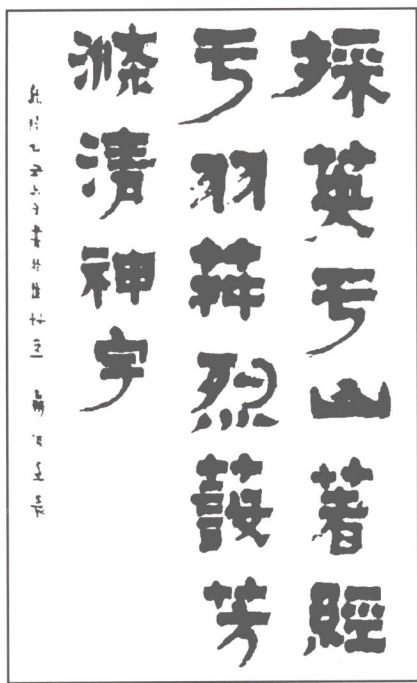 採英于山著經
于羽荈烈蔎芳
滌清神宇